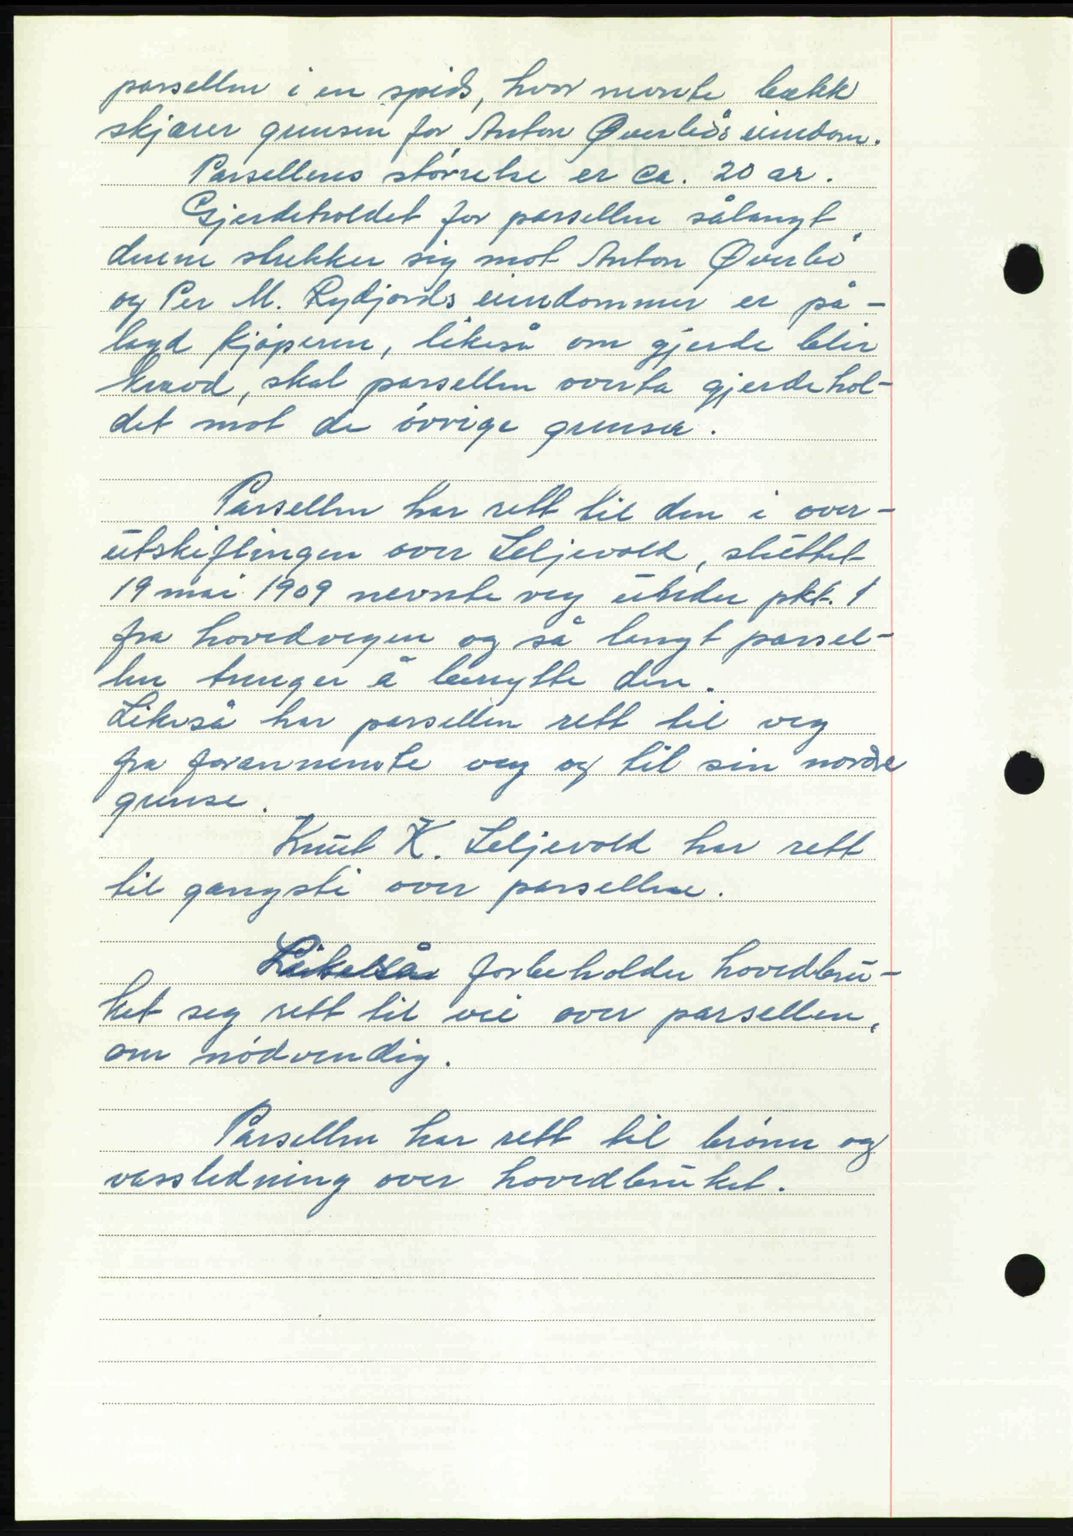 parsellen i en spids, hvor nevnte bækk
skjærer grensen for Anton Øverbö's eiendom.
Parsellens störrelse er ca. 20 ar.
Gjerdeholdet for parsellen sålangt
denne strekker sig mot Anton Øverbö
og Per M. Rydjords eiendommer er på-
lagd kjöperen, likeså om gjerde blir
krævd, skal parsellen overta gjerdehol-
det mot de övrige grenser.
Parsellen har rett til den i over-
utskiftingen over Seljevold, sluttet
19 mai 1909 nevnte veg under pkt. 1
fra hovedvegen og så langt parsel-
len trenger å benytte den.
Likeså har parsellen rett til veg
fra forannevnte veg og til sin nordre
grense.
Knut K. Seljevold har rett
til gangsti over parsellen.
Likeså forbeholder hovedbru-
ket seg rett til vei over parsellen,
om nödvendig.
Parsellen har rett til brönn og
vassledning over hovedbruket.